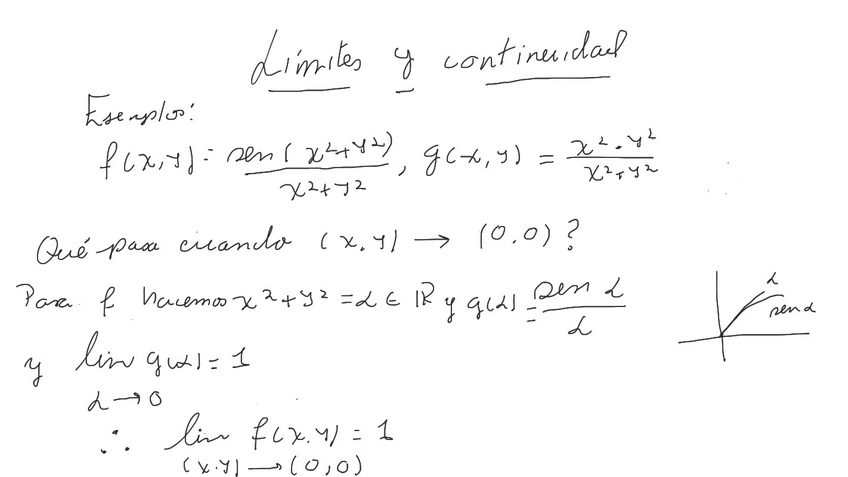 Límites y continuidad
Ejemplos:
f(x,y) = sen(x²+y²)/(x²+y²), g(x,y) = x²-y²/(x²+y²)
Qué pasa cuando (x,y) → (0,0)?
Para f hacemos x²+y² = α ∈ ℝ y g(α) = sen α/α
α
sen α
y lim g(α) = 1
α→0
∴ lim f(x,y) = 1
(x,y) → (0,0)